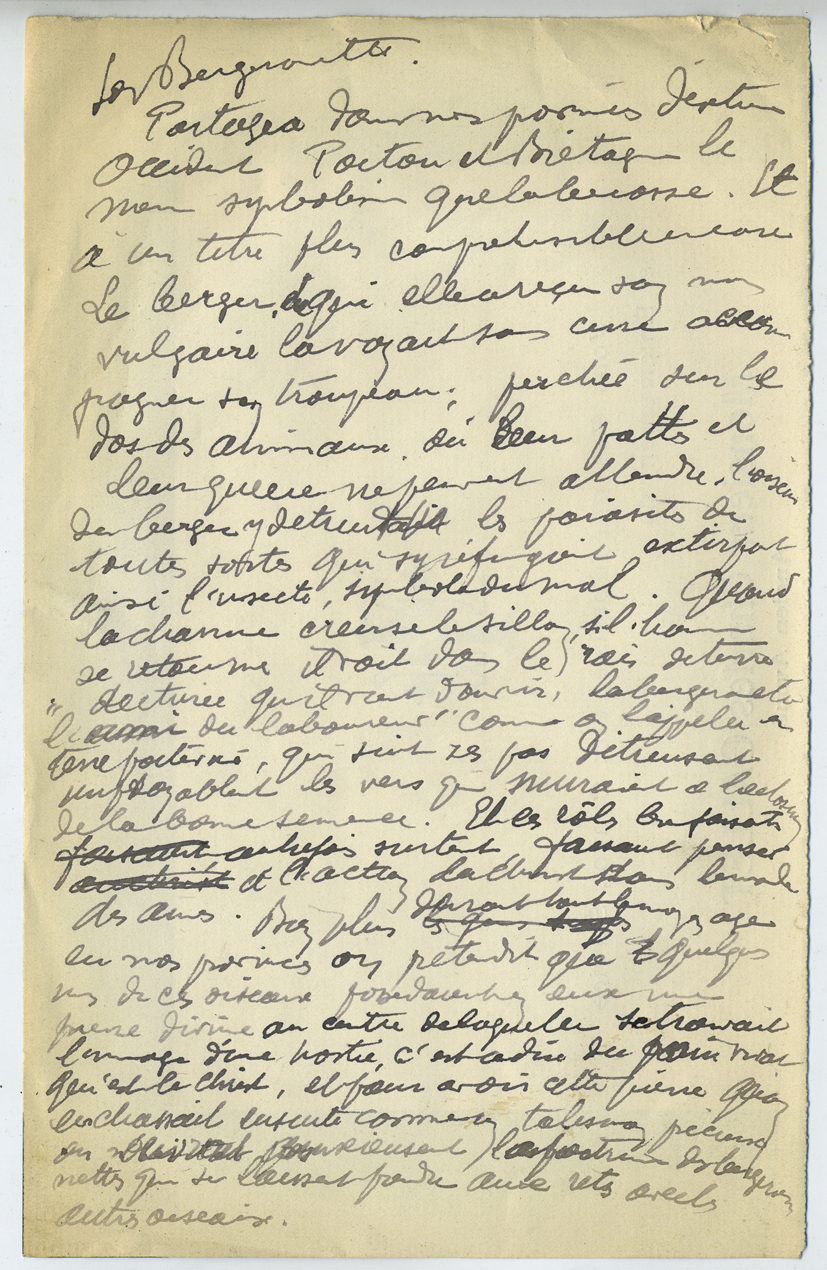 La Bergeronnette.
Partagea dans nos provinces d'extrême
Occident Poitou et Brétagne le
même symbolisme que la bécasse. Et
à un titre plus compréhensible encore
Le berger, de qui elle a reçu son nom
vulgaire la voyait sans cesse accom
pagner son troupeau; perchée sur le
dos des animaux où leur pattes et
leur gueule ne peuvent attendre, l'oiseau
du berger y détruit les parasites de
toutes sortes qui s'y réfugient extirpant
ainsi l'insecte, symbole du mal. Quand
la charrue creuse le sillon, si l'homme
se retourne il voit dans le rais de terre
décturée qu'il vient d'ouvrir, la bergeronnette
"l'ami du laboureur" comme on l'appelle en
terre poitevine, qui suit ses pas détruisant
impitoyablement les vers qui nuiraient à l'éclosion
de la bonne semence. Et ces rôles bienfaisants
autrefois surtout faisaient penser
à l'action du Christ dans le monde
des âmes. Bien plus durant tout le moyen age
en nos provinces on prétendit que quelques
uns de ces oiseaux pondaient en eux une
pierre divine au centre de laquelle se trouvait
l'image d'une hostie, c'est à dire du pain vivant
qu'est le Christ, et pour avoir cette pierre qu'on
enchassait ensuite comme un talisman précieux
on ouvrait curieusement la poitrine des bergeron
nettes qui se laissent prendre aux rets avec les
autres oiseaux.